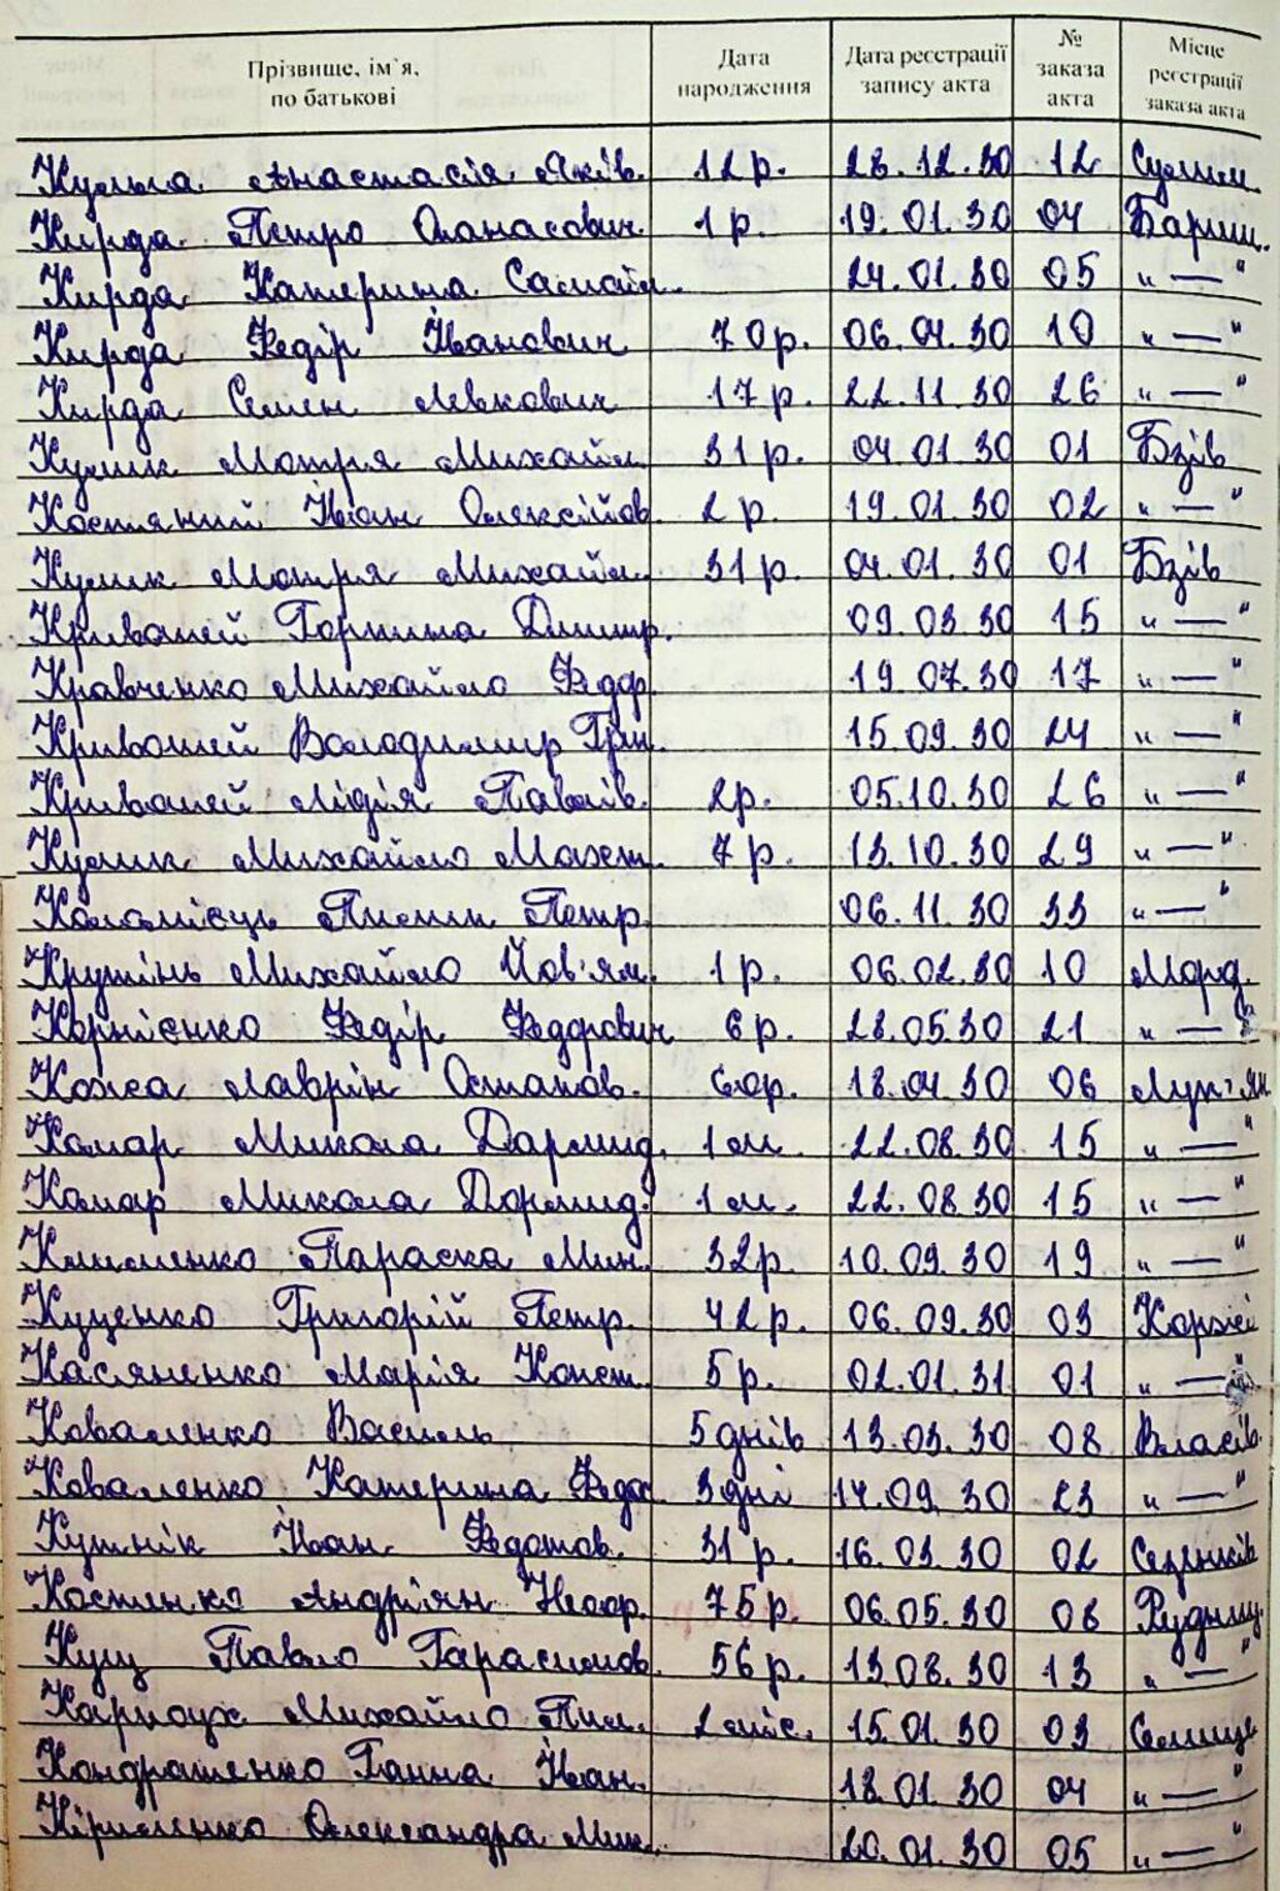 Прізвище, ім`я, по батькові Дата народження Дата реєстрації запису акта № заказа акта Місце реєстрації заказа акта
Кульга Анастасія Яків. 12 р. 28.12.30 12 Сулим.
Кирда Петро Опанасович 1 р. 19.01.30 04 Бариш.
Кирда Катерина Самойл. 24.01.30 05 " — "
Кирда Федір Іванович 70 р. 06.04.30 10 " — "
Кирда Семен Левкович 17 р. 22.11.30 26 " — "
Кулик Мотря Михайл. 31 р. 04.01.30 01 Бзів
Костяний Іван Олексійов. 2 р. 19.01.30 02 " — "
Кулик Мотря Михайл. 31 р. 04.01.30 01 Бзів
Кривошей Горпина Дмитр. 09.03.30 15 " — "
Кравченко Михайло Федор. 19.07.30 17 " — "
Кривошей Володимир Григ. 15.09.30 24 " — "
Кривошей Лідія Павлів. 2 р. 05.10.30 26 " — "
Кулик Михайло Мохет. 7 р. 13.10.30 29 " — "
Коломієць Пилип Петр. 06.11.30 33 " — "
Крутінь Михайло Йов'ям. 1 р. 06.02.30 10 Морд.
Корнієнко Федір Федорович 6 р. 28.05.30 21 " — "
Кожа Лаврін Остапов. 60р. 18.04.30 06 Лук'ян
Комар Микола Дармид. 1 м. 22.08.30 15 " — "
Комар Микола Дормид. 1 м. 22.08.30 15 " — "
Клименко Параска Мин. 32р. 10.09.30 19 " — "
Куценко Григорій Петр. 42 р. 06.09.30 03 Коржі
Касяненко Марія Конст. 5 р. 02.01.31 01 " — "
Коваленко Василь 5 днів 13.03.30 08 Власів.
Коваленко Катерина Федо 3 дні 14.09.30 23 " — "
Кутнік Іван Федотов. 31 р. 16.03.30 02 Селѣнків
Костенко Андріян Нестор. 75 р. 06.05.30 08 Рудниц.
Кущ Павло Гарасимов. 56 р. 13.08.30 13 " — "
Карноух Михайло Пил. 2 міс. 15.01.30 03 Селище
Кондратенко Ганна Іван. 18.01.30 04 " — "
Кириленко Олександра Мик. 20.01.30 05 " — "